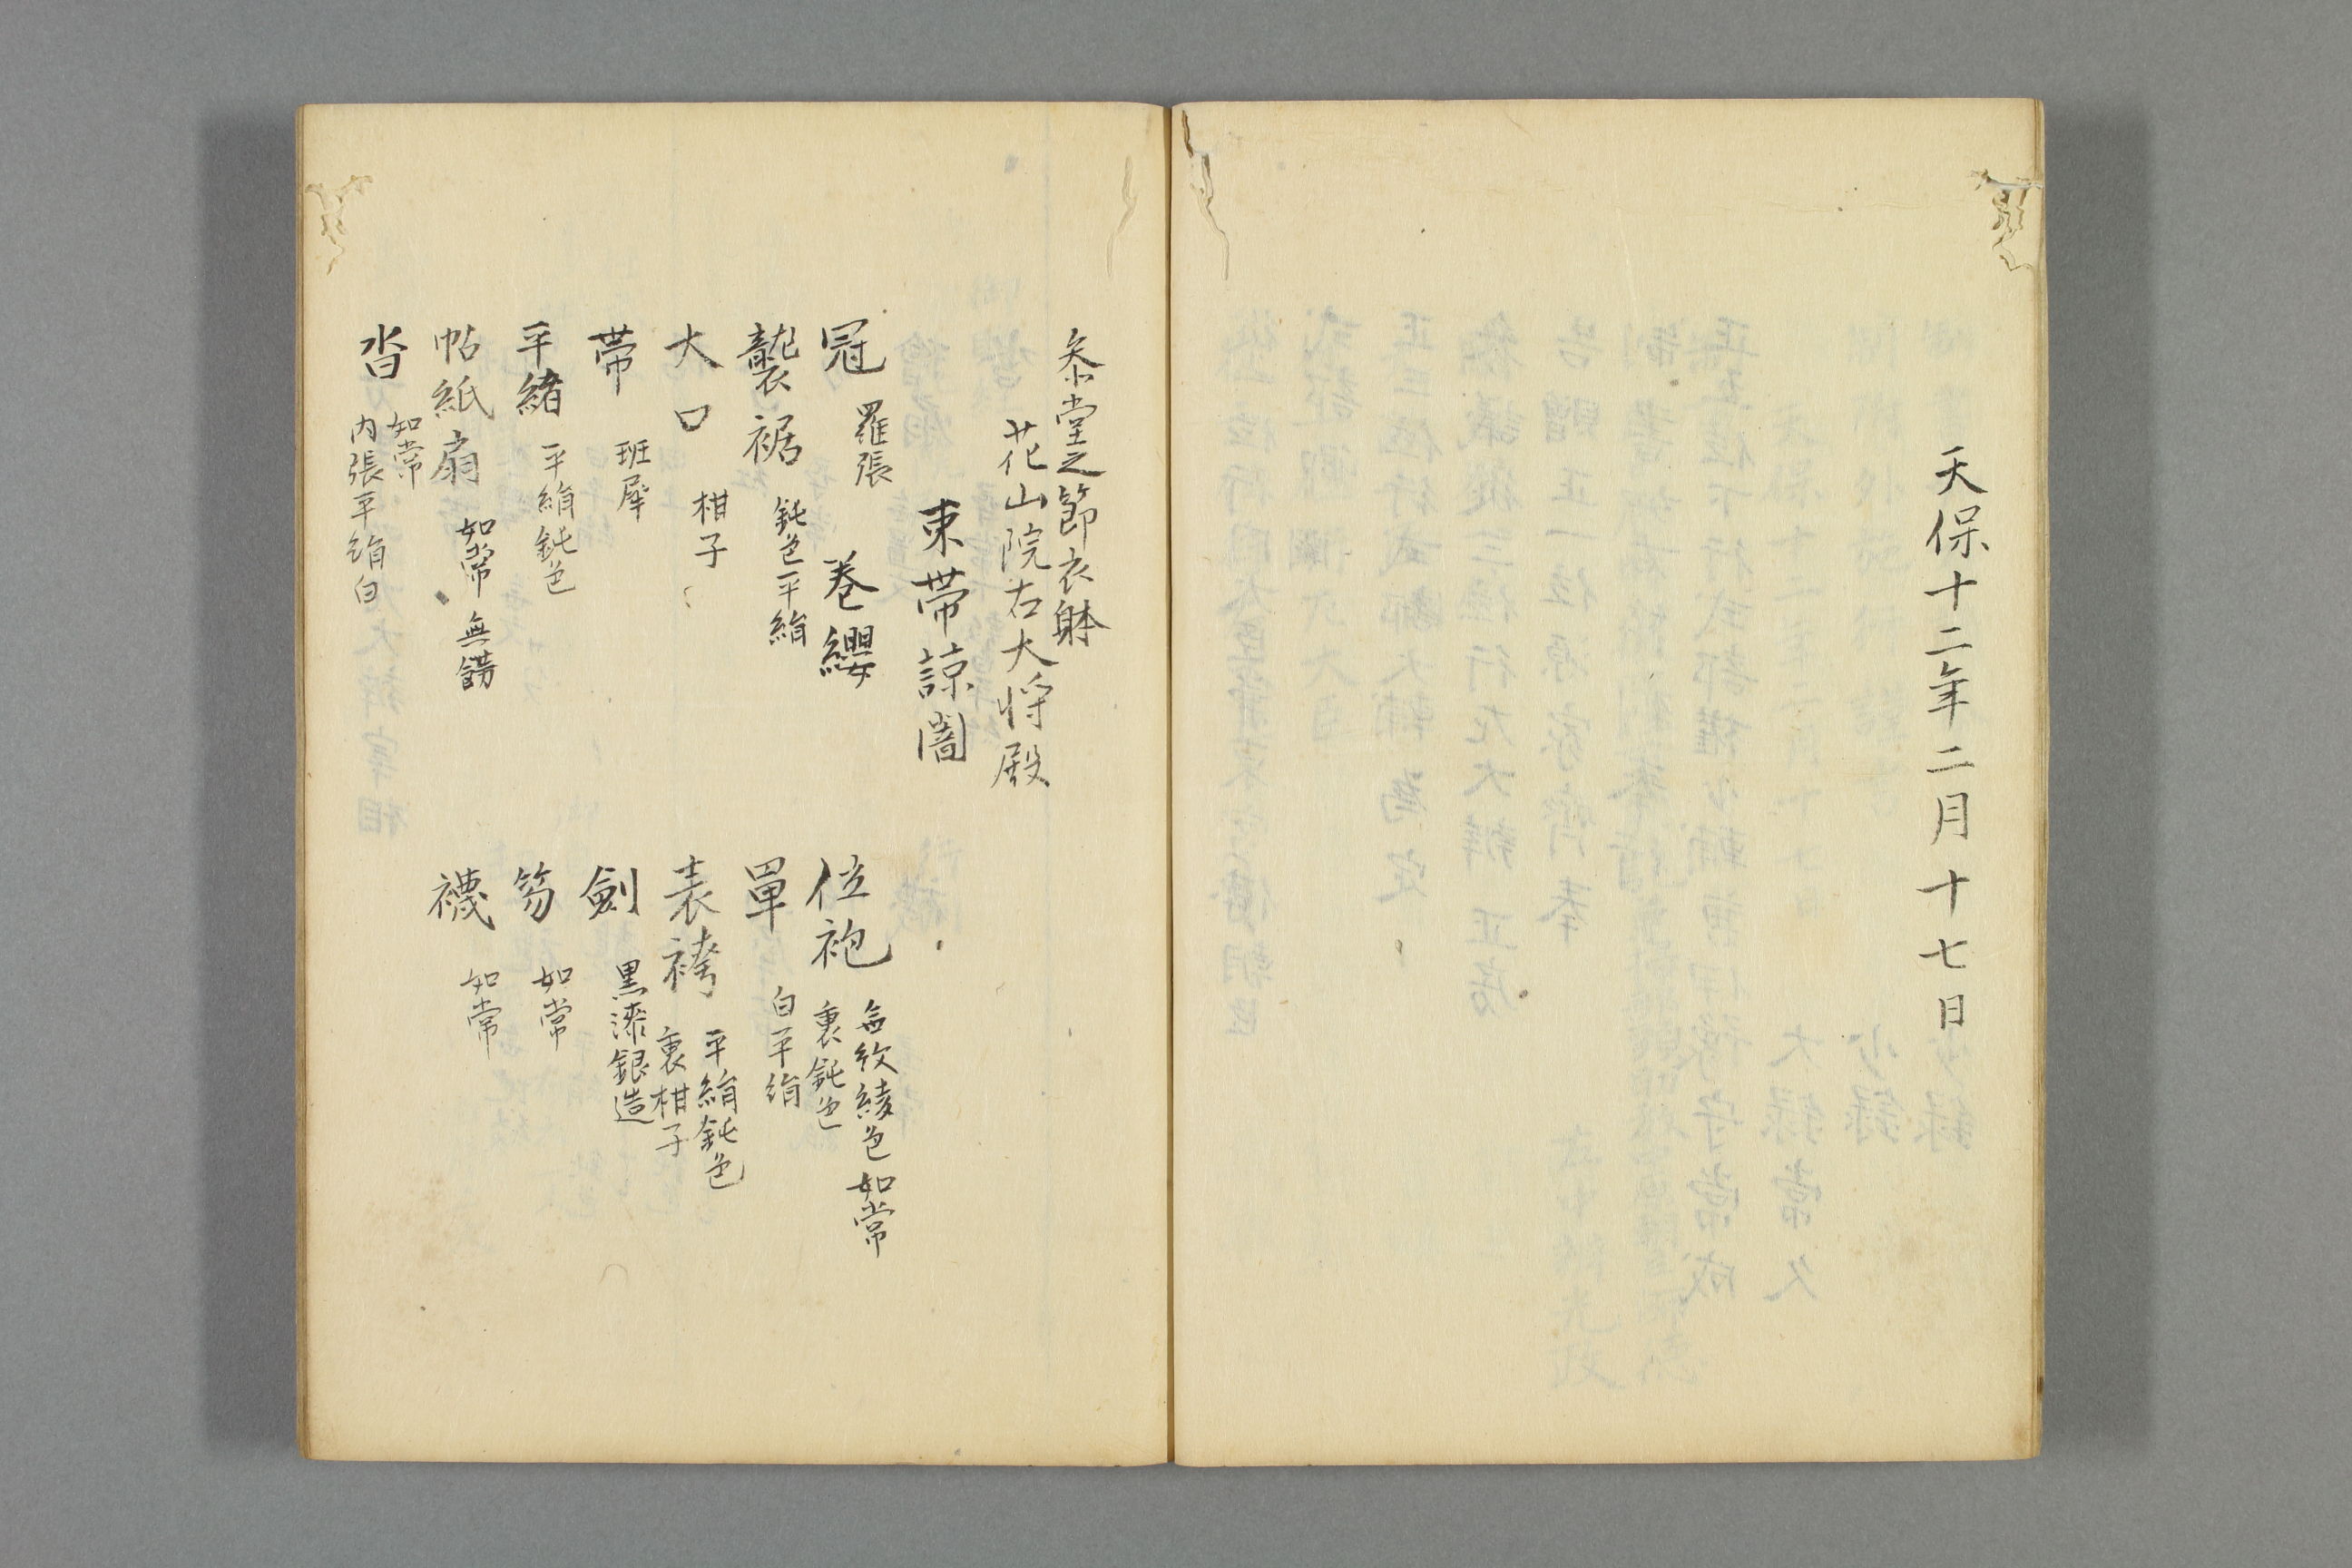 天保十二年二月十七日
叅堂之節衣躰
花山院右大将殿
束帯諒闇
冠 羅張 巻纓
位袍 無紋綾色如常
裏鈍色
襲裾 鈍色平絹
單 白平絹
大口 柑子
表袴 平絹鈍色
裏柑子
帯 班犀
劍 黒漆銀造
平緒 平絹鈍色
笏 如常
帖紙扇 如常 無餝
襪 如常
沓 如常
内張平絹白